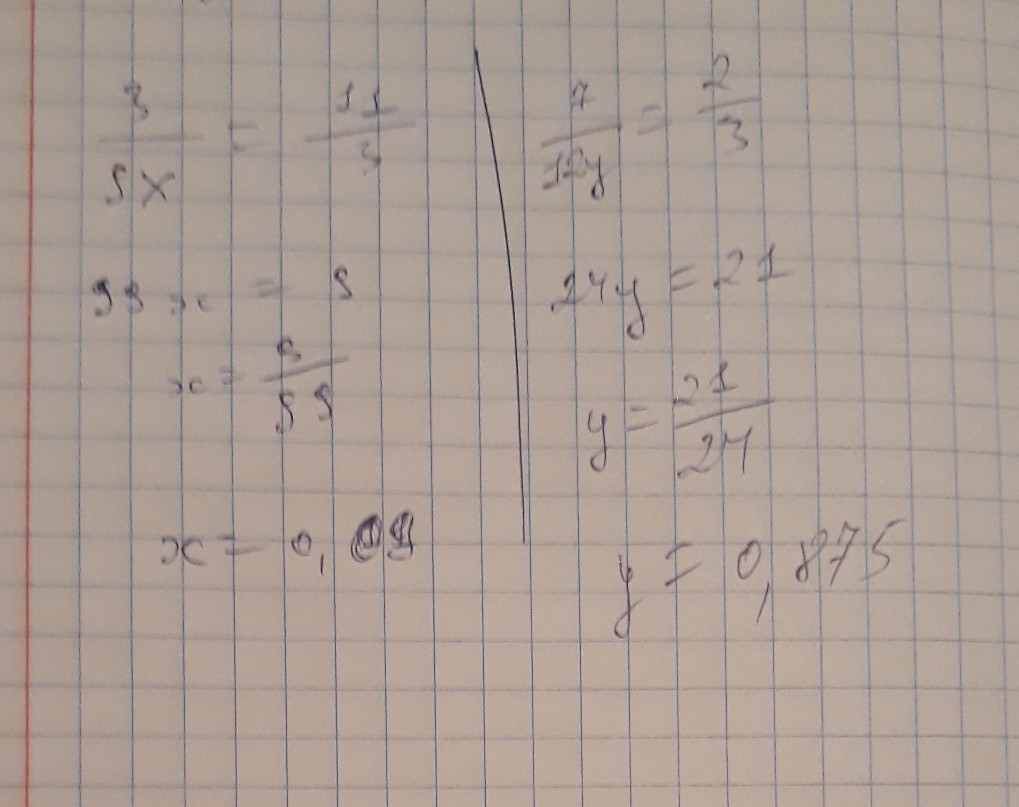 3/9x = 11/3
99x = 9
x = 9/99
x = 0,09
7/12y = 2/3
24y = 21
y = 21/24
y = 0,875